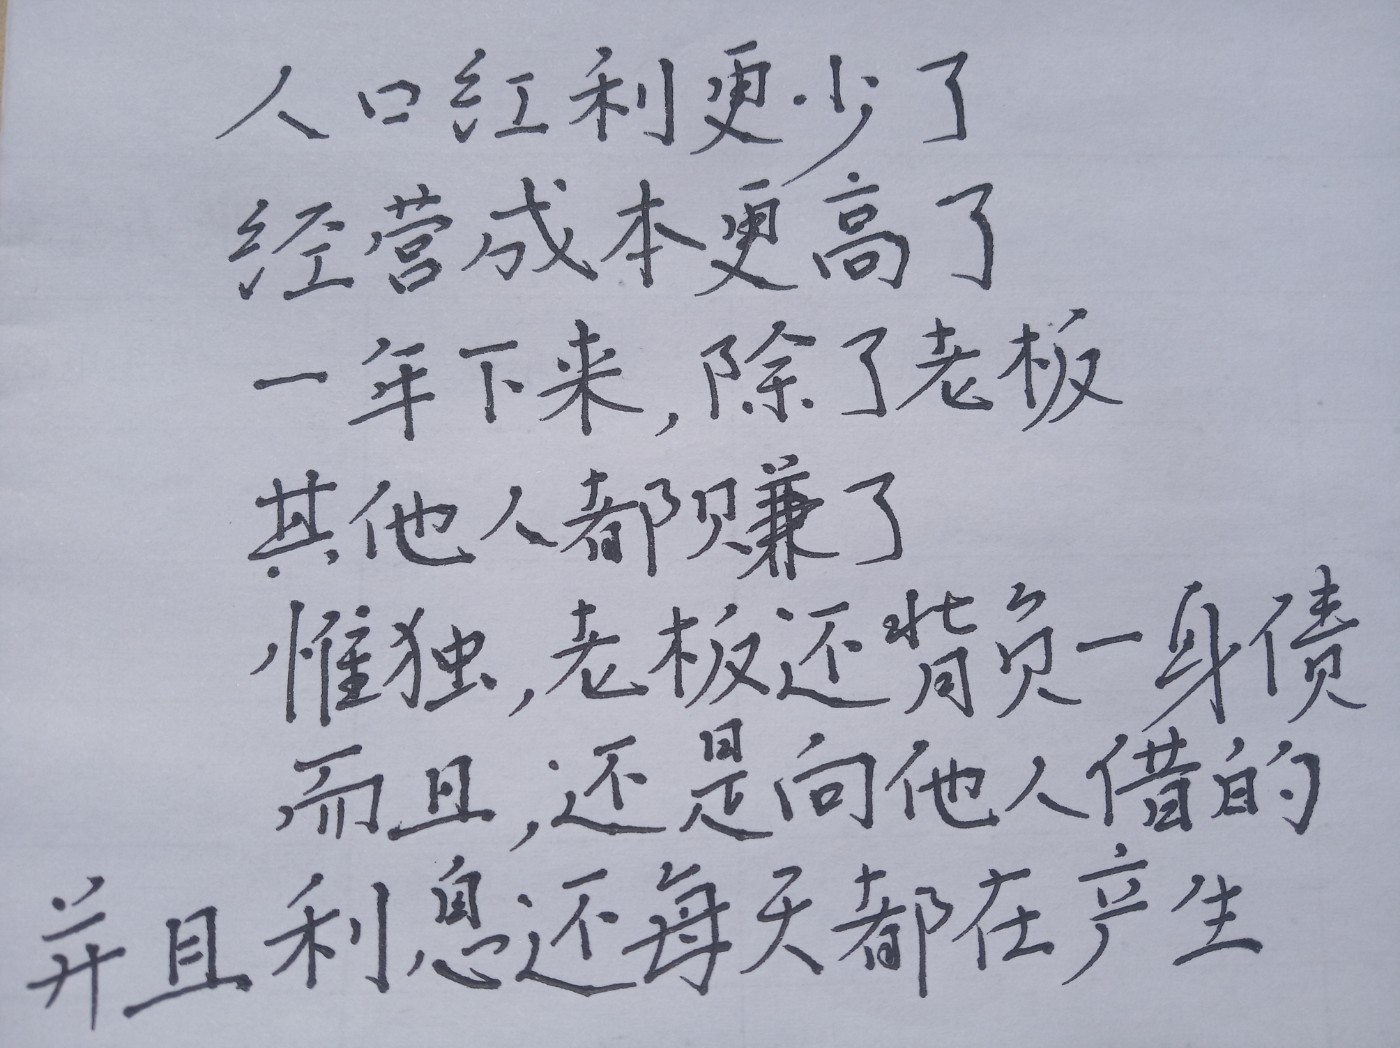 人口红利更少了
经营成本更高了
一年下来,除了老板
其他人都赚了
惟独,老板还背负一身债
而且,还是向他人借的
并且利息还每天都在产生